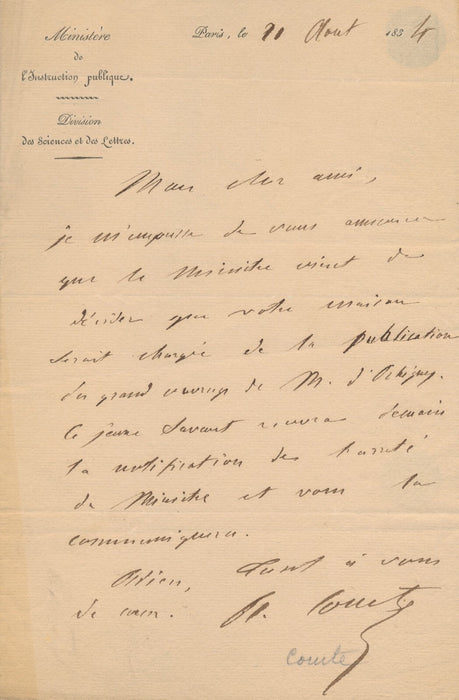 Ministère
de
l'Instruction publique.
Division
des Sciences et des Lettres.
Paris, le 21 Aout 1834
Mon cher ami,
je m'empresse de vous annoncer
que le Ministre vient de
décider que votre maison
serait chargée de la publication
du grand ouvrage de M. d'Orbigny.
Ce jeune Savant recevra demain
la notification de l'arrêté
du Ministre et vous la
communiquera.
Adieu, tout à vous
de cœur. Comte
Comte